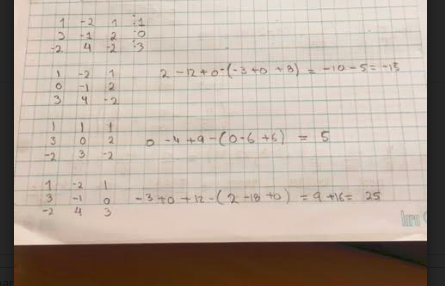 1 -2 1 :1
3 -1 2 :0
-2 4 -2 :3
1 -2 1
0 -1 2 2 -12 +0 -(-3 +0 +8) = -10 -5 = -15
3 4 -2
1 1 1
3 0 2 0 -4 +9 -(0 -6 +6) = 5
-2 3 -2
1 -2 1
3 -1 0 -3 +0 +12 -(2 -18 +0) = 9 +16 = 25
-2 4 3